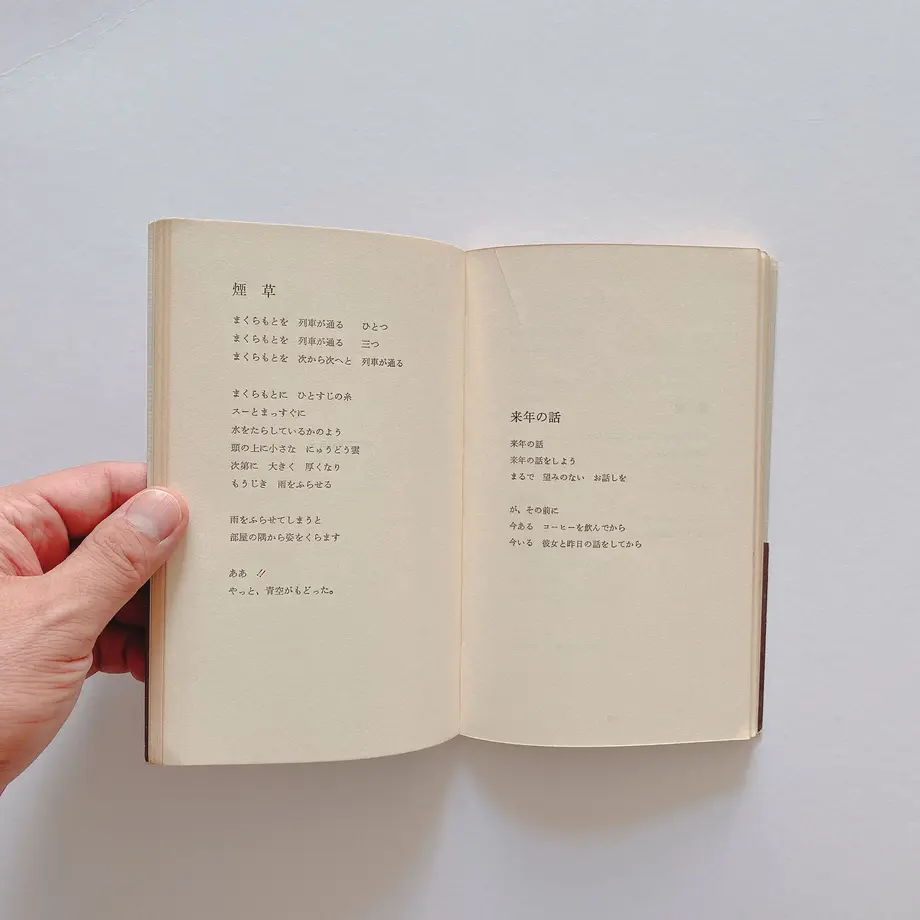 煙　草
まくらもとを　列車が通る　　ひとつ
まくらもとを　列車が通る　　三つ
まくらもとを　次から次へと　列車が通る
まくらもとに　ひとすじの糸
スーとまっすぐに
水をたらしているかのよう
頭の上に小さな　にゅうどう雲
次第に　大きく　厚くなり
もうじき　雨をふらせる
雨をふらせてしまうと
部屋の隅から姿をくらます
ああ　!!
やっと、青空がもどった。
来年の話
来年の話
来年の話をしよう
まるで　望みのない　お話しを
が、その前に
今ある　コーヒーを飲んでから
今いる　彼女と昨日の話をしてから